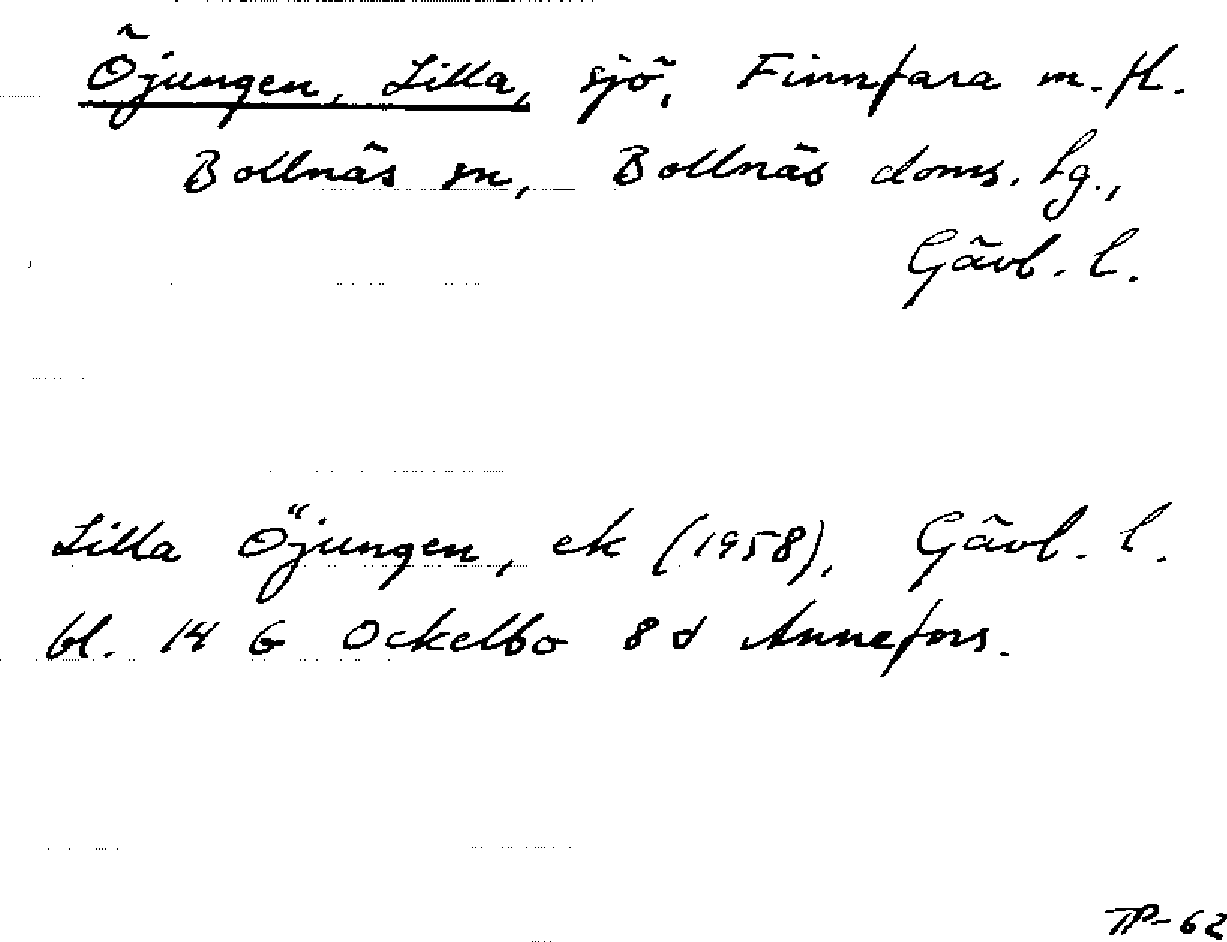 Öjungen, Lilla, sjö, Finnfara m.fl.
Bollnäs sn, Bollnäs doms. hg.,
Gävl. l.
Lilla Öjungen, ek (1958), Gävl. l.
bl. 14 G Ockelbo 8 d Annefors.
TP-62